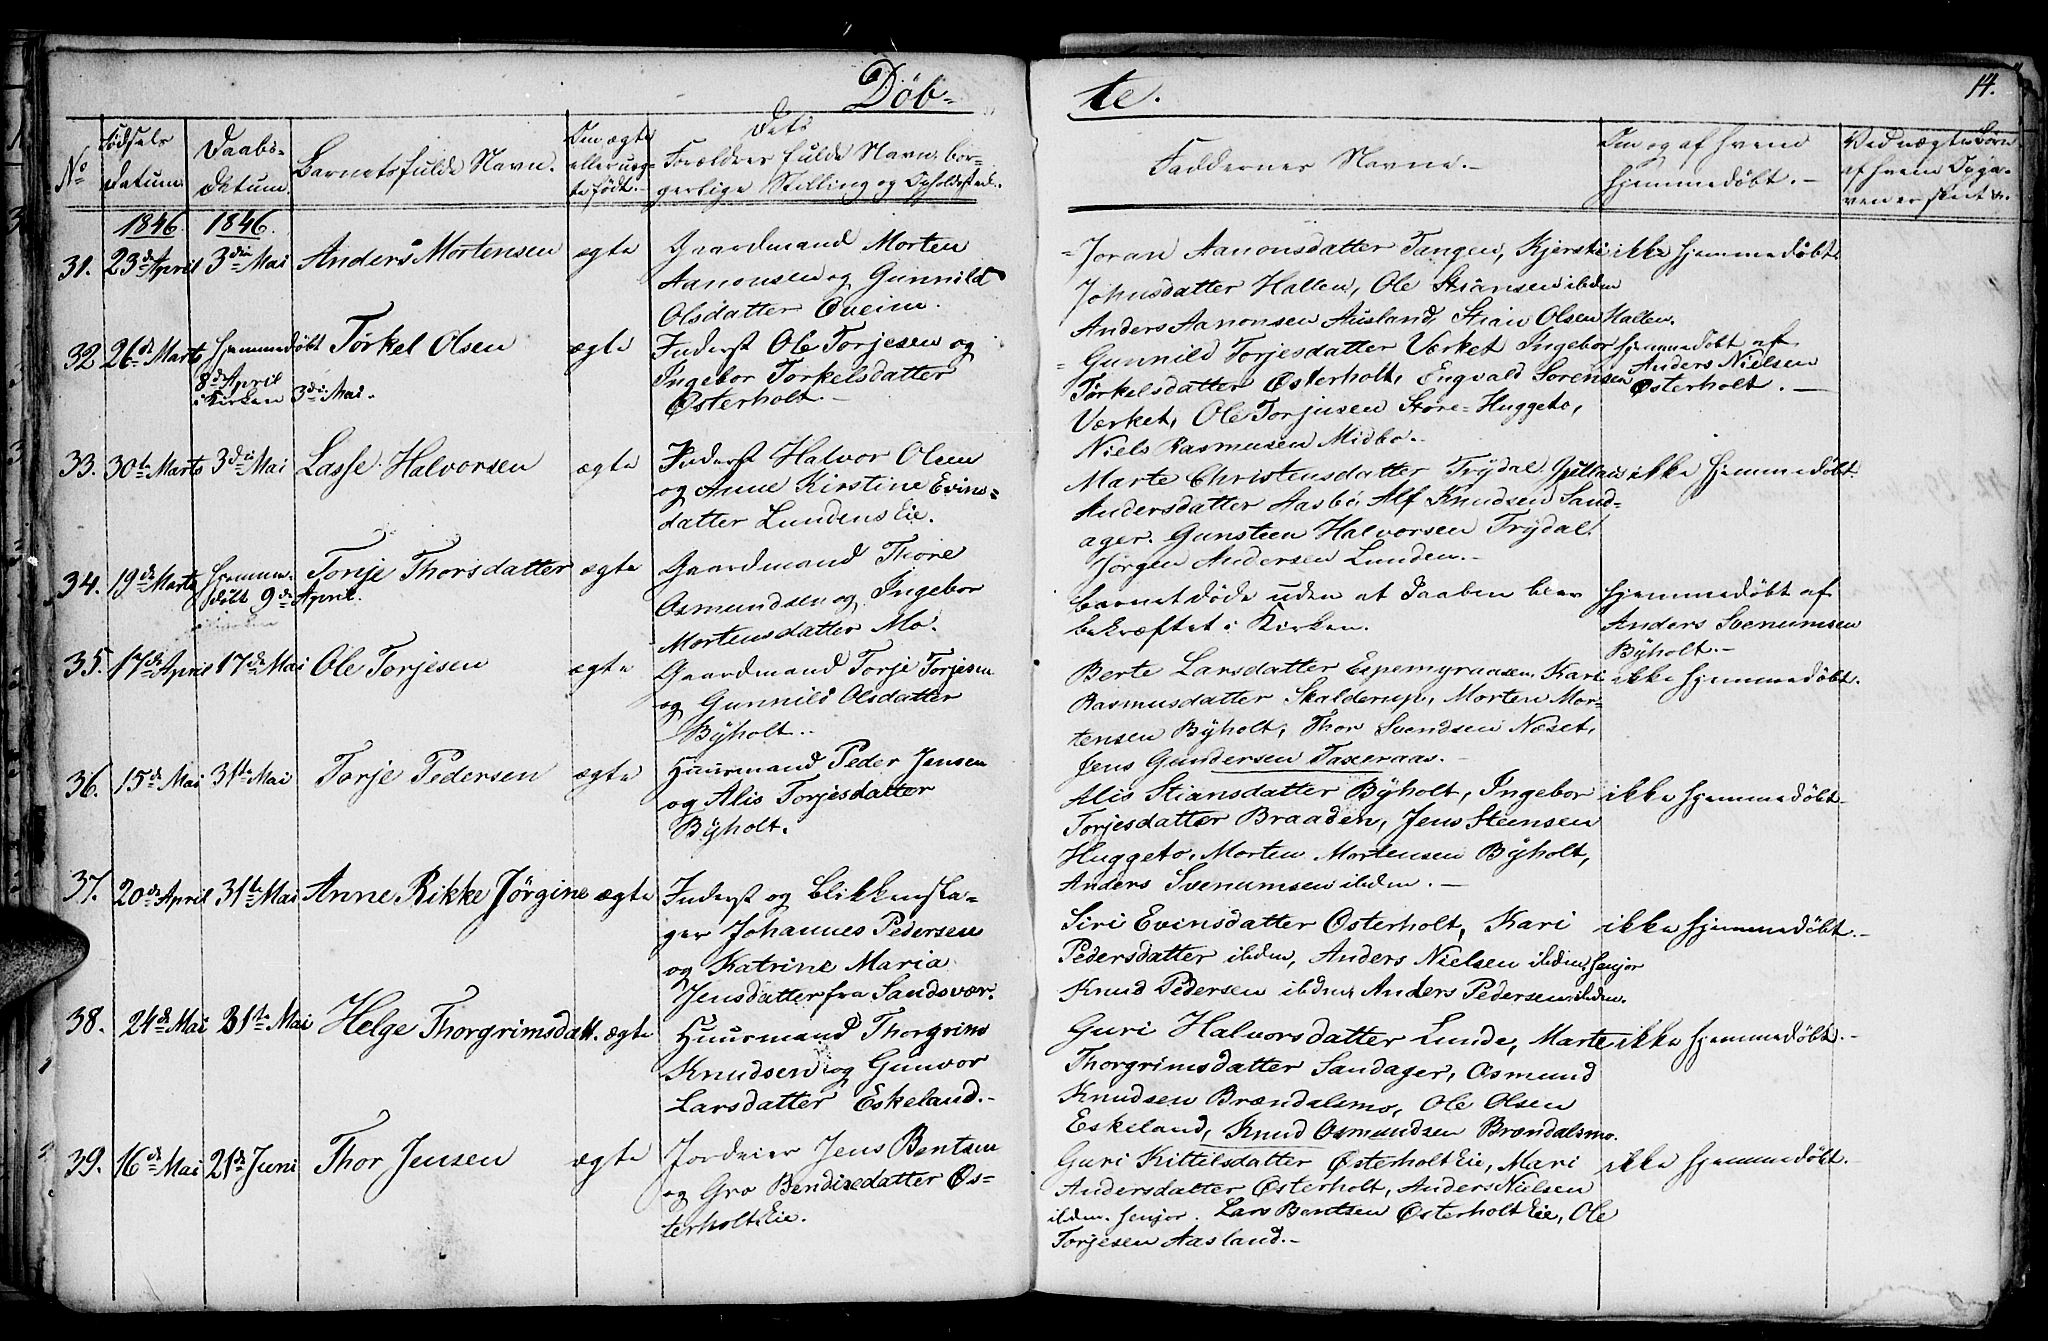 Døb-
te.
14.
No
Fødsels
datum.
Daabs-
datum.
Barnets fulde Navn.
Om ægte
eller uæg-
te født.
Dets
Forældres fulde Navn, bor-
gerlige Stilling og Opholdssted.
Faddernes Navne.
Om og af hvem
hjemmedøbt.
Ved uægte Børn
af hvem Opga-
ven er skeet &.
1846.
1846.
31. 23de April 3die Mai Anders Mortensen ægte
Gaardmand Morten
Aanonsen og Gunnild
Olsdatter Qveim.
= Joran Aanonsdatter Tangen, Kjersti
Johnsdatter Hallen, Ole Stiansen ibdm
Anders Aanonsen Ausland, Stian Olsen Hallen.
ikke hjemmedøbt
32 26de Marts Hjemmedøbt
8de April
i Kirken 3die Mai.
Torkel Olsen ægte
Inderst Ole Torjesen og
Ingebor Torkelsdatter
Østerholt.
= Gunnild Torjesdatter Værket Ingebor
Torkelsdatter Østerholt, Engvald Sorensen
Værket, Ole Torjusen Store-Huggeto,
Niels Rasmusen Midbo.
hjemmedøbt af
Anders Nielsen
Østerholt.
33. 30te Marts 3die Mai Lasse Halvorsen ægte
Inderst Halvor Olsen
og Anne Kirstine Evins-
datter Lundens Eie.
Marte Christensdatter Trydal,
Andersdatter Aasbø, Alf Knudsen Sand-
ager. Gunsteen Halvorsen Trydal.
Jørgen Andersen Lunden.
ikke hjemmedøbt.
34. 19de Marts Hjemme-
døbt 9de April.
Torje Thorsdatter ægte
Gaardmand Thore
Osmundsen og Ingebor
Mortensdatter Mo.
barnet døde uden at Daaben blev
bekræftet i Kirken.
hjemmedøbt af
Anders Svenumsen
Byholt.
35. 17de April 17de Mai Ole Torjesen ægte
Gaardmand Torje Torjesen
og Gunnild Olsdatter
Byholt.
Berte Larsdatter Espemyraasen, Kari
Rasmusdatter Skalderup, Morten Mor-
tensen Byholt, Thor Svendsen Næset,
Jens Gundersen Taxeraas.
ikke hjemmedøbt.
36. 15de Mai 31te Mai Torje Pedersen ægte
Huusmand Peder Jensen
og Alis Torjesdatter
Byholt.
Alis Stiansdatter Byholt, Ingebor
Torjesdatter Braaden, Jens Steensen
Huggeto, Morten Mortensen Byholt,
Anders Svenumsen ibdm.
ikke hjemmedøbt
37. 20de April 31te Mai Anne Rikke Jørgine ægte
Inderst og Blikkensla-
ger Johannes Pedersen
og Katrine Maria
Jensdatter fra Sandsvær.
Siri Evinsdatter Østerholt, Kari
Pedersdatter ibdm, Anders Nielsen ibdm, senjor
Knud Pedersen ibdm, Anders Pedersen ibdm.
ikke hjemmedøbt.
38. 24de Mai 31te Mai Helge Thorgrimsdatt. ægte
Huusmand Thorgrim
Knudsen og Gunvor
Larsdatter Eskeland.
Guri Halvorsdatter Lunde, Marte
Thorgrimsdatter Sandager, Osmund
Knudsen Brændalsmo, Ole Olsen
Eskeland, Knud Osmundsen Brændalsmo.
ikke hjemmedøbt.
39. 16de Mai 21de Juni Thor Jensen ægte
Jordeier Jens Bentsen
og Gro Bendixdatter Øs-
terholt Eie.
Guri Kittilsdatter Østerholt Eie, Mari
Andersdatter Østerholt, Anders Nielsen
ibdm. senjor. Lars Bentsen Østerholt Eie, Ole
Torjesen Aasland.
ikke hjemmedøbt.